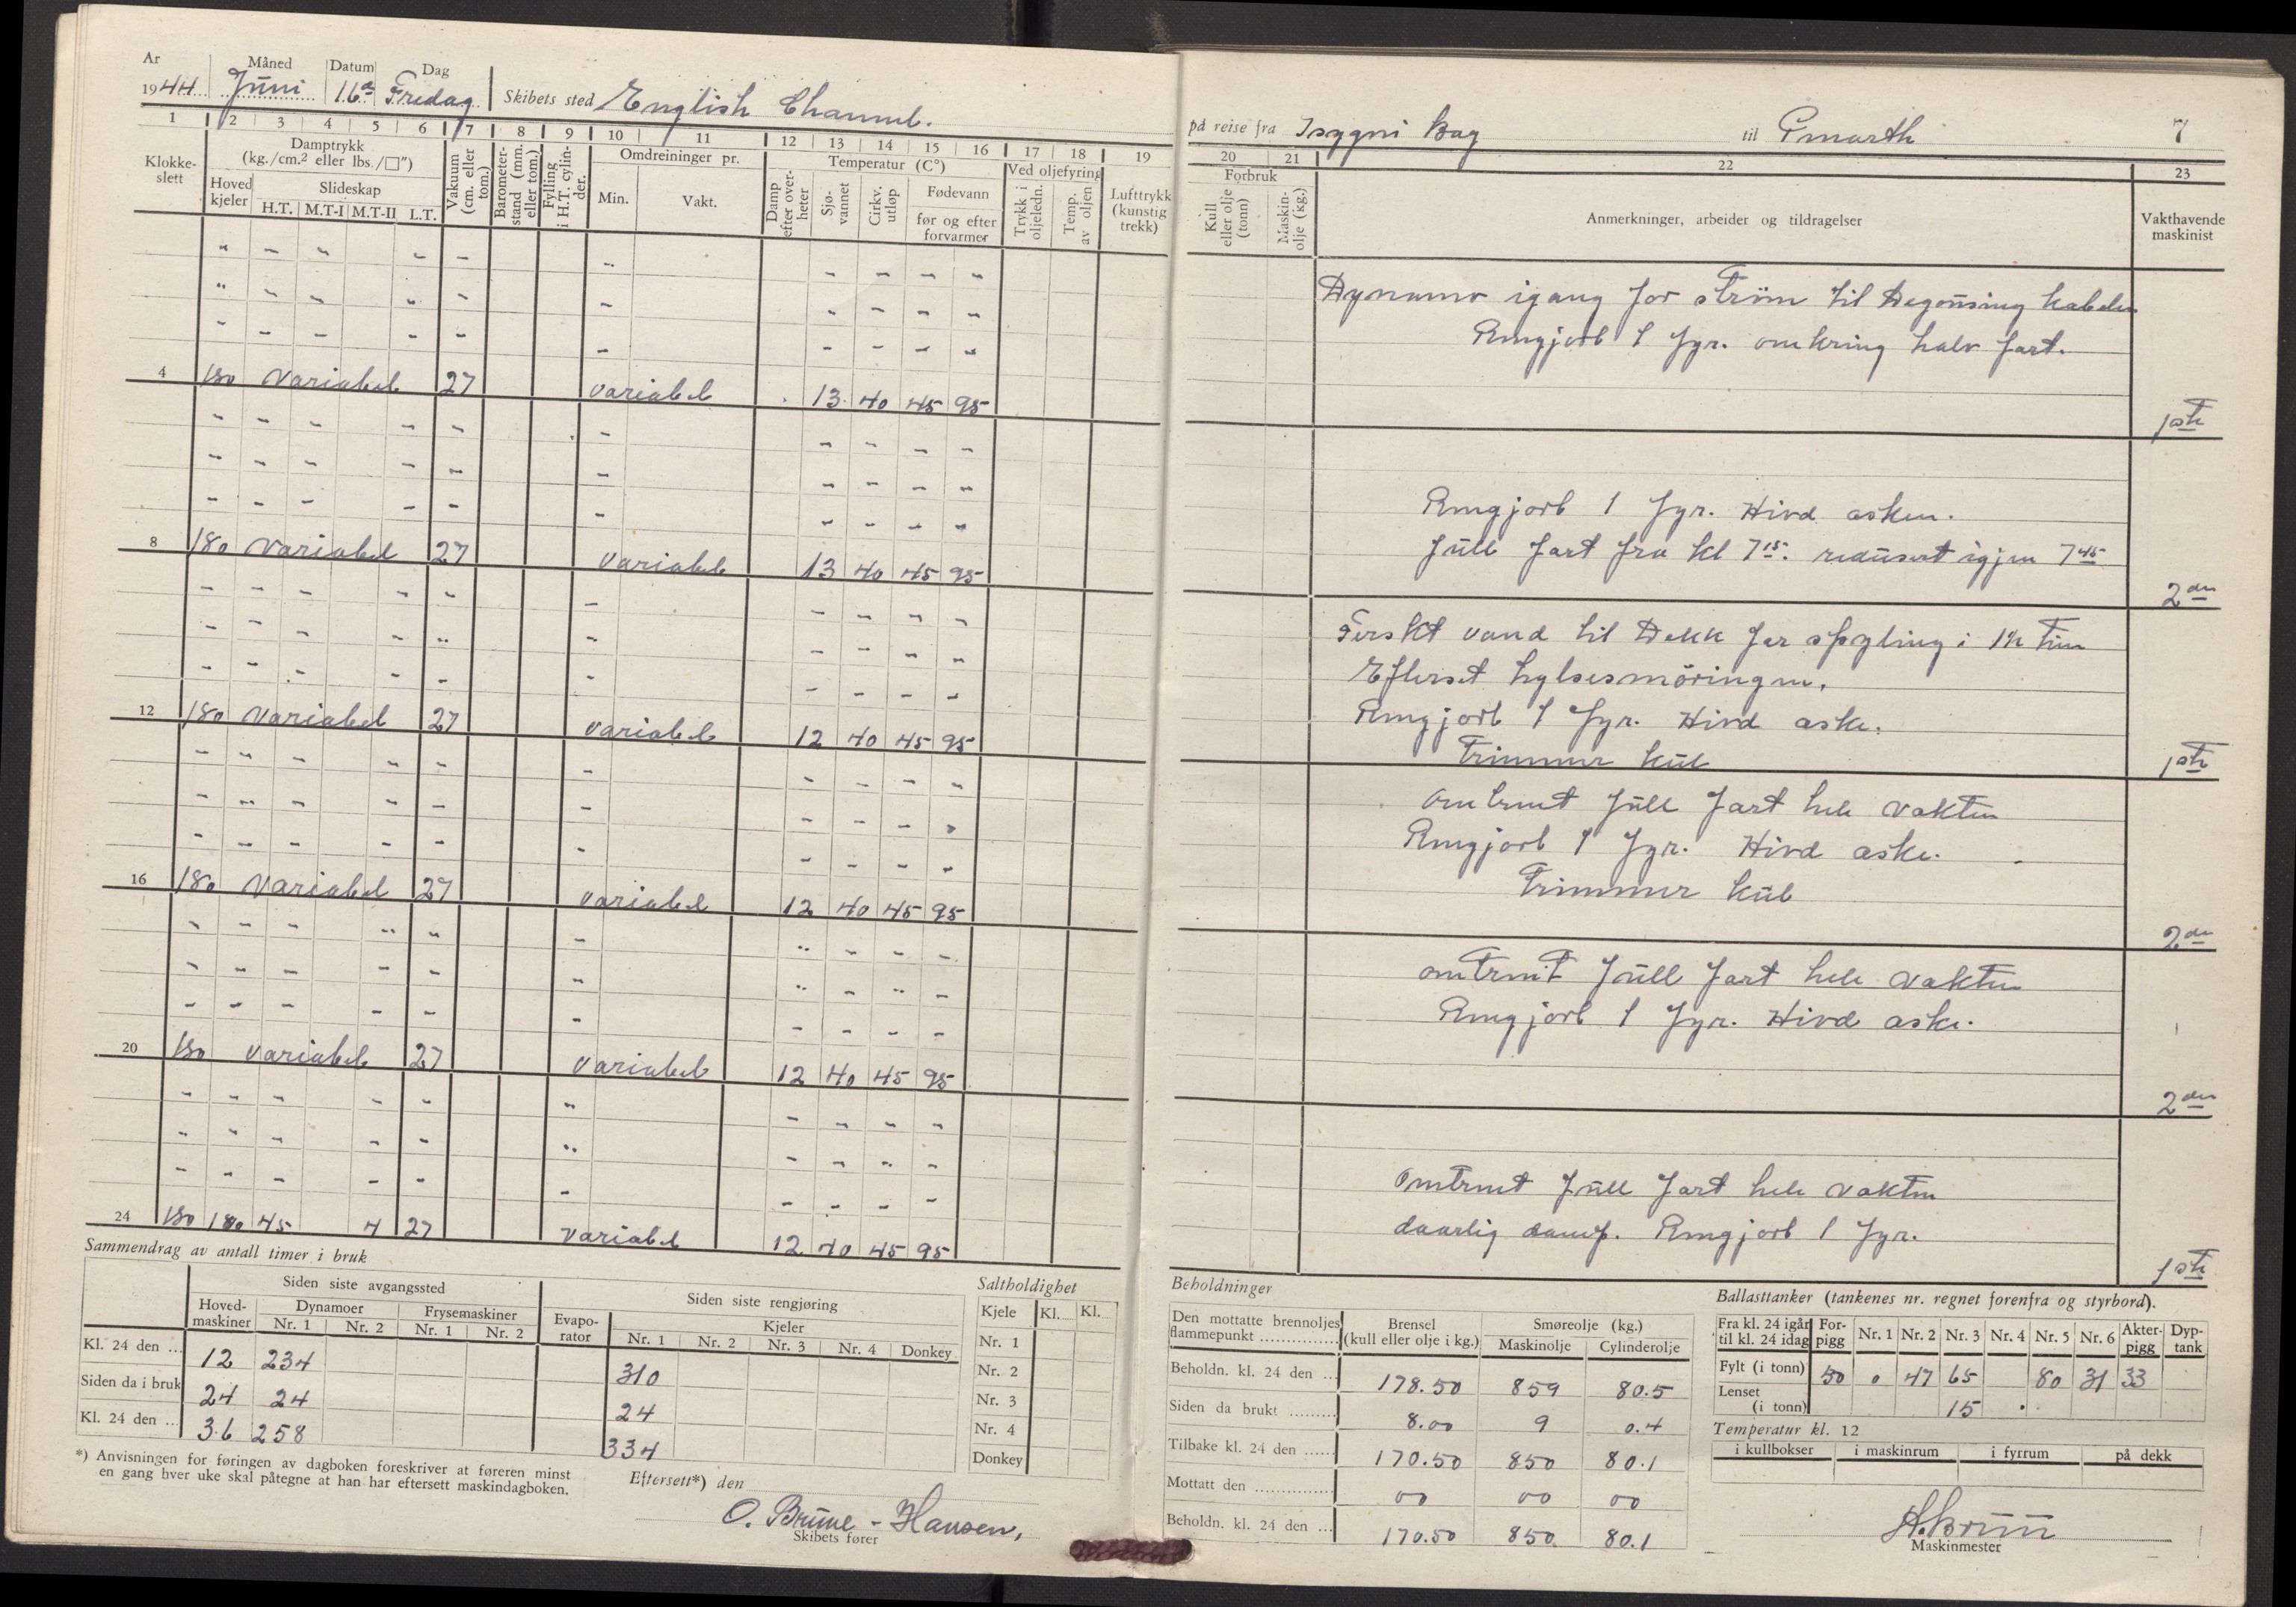 År Måned Datum Dag
1944 Juni 16de Fredag Skibets sted English Channel.
1 2 3 4 5 6 7 8 9 10 11 12 13 14 15 16 17 18 19
Klokkeslett
Damptrykk
(kg./cm.² eller lbs./□")
Hovedkjeler
Slideskap
H.T. M.T-I M.T-II L.T.
Vakuum (cm. eller tom.)
Barometerstand (mm. eller tom.)
Fylling i H.T. cylinder.
Omdreininger pr.
Min. Vakt.
Temperatur (C°)
Damp efter overheter
Sjøvannet
Cirkv. utløp
Fødevann
før og efter forvarmer
Ved oljefyring
Trykk i oljeledn.
Temp. av oljen
Lufttrykk (kunstig trekk)
4 180 variabel 27 variabel 13 40 45 95
8 180 variabel 27 variabel 13 40 45 95
12 180 variabel 27 variabel 12 40 45 95
16 180 variabel 27 variabel 12 40 45 95
20 180 variabel 27 variabel 12 40 45 95
24 180 180 45 4 27 variabel 12 40 45 95
Sammendrag av antall timer i bruk
Siden siste avgangssted
Siden siste rengjøring
Hovedmaskiner
Dynamoer
Frysemaskiner
Evaporator
Kjeler
Nr. 1 Nr. 2 Nr. 1 Nr. 2 Nr. 1 Nr. 2 Nr. 3 Nr. 4 Donkey
Kl. 24 den ... 12 234 310
Siden da i bruk 24 24 24
Kl. 24 den ... 36 258 334
Saltholdighet
Kjele Kl. Kl.
Nr. 1
Nr. 2
Nr. 3
Nr. 4
Donkey
*) Anvisningen for føringen av dagboken foreskriver at føreren minst
en gang hver uke skal påtegne at han har eftersett maskindagboken.
Eftersett*) den
O. Brune-Hansen,
Skibets fører
på reise fra Isygni Bay til 7
20 21 22 23
Forbruk
Kull eller olje (tonn)
Maskinolje (kg.)
Anmerkninger, arbeider og tildragelser
Vakthavende maskinist
Dynamo igang for strøm til Degausing kabelen
Rengjort 1 fyr. omkring halv fart.
1ste
Rengjort 1 fyr. Hivd asken.
Füll fart fra kl 7 15. redusert igjen 7 45
2den
Ferskt vand til Dekk for spyling i 1½ time
Efterset hylsesmöringen.
Rengjort 1 fyr. Hivd aske.
Trimmer kül
1ste
omtrent füll fart hele vakten
Rengjort 1 fyr. Hivd aske.
Trimmer kül
2den
omtrent füll fart hele vakten
Rengjort 1 fyr. Hivd aske.
2den
Omtrent füll fart hele vakten
daarlig damp. Rengjort 1 fyr.
1ste
Beholdninger
Den mottatte brennoljes flammepunkt
Brensel (kull eller olje i kg.)
Smøreolje (kg.)
Maskinolje Cylinderolje
Beholdn. kl. 24 den ... 178.50 859 80.5
Siden da brukt ... 8.00 9 0.4
Tilbake kl. 24 den ... 170.50 850 80.1
Mottatt den ... 00 00 00
Beholdn. kl. 24 den ... 170.50 850 80.1
Ballasttanker (tankenes nr. regnet forenfra og styrbord).
Fra kl. 24 igår til kl. 24 idag Forpigg Nr. 1 Nr. 2 Nr. 3 Nr. 4 Nr. 5 Nr. 6 Akterpigg Dyptank
Fylt (i tonn) 50 0 47 65 80 31 33
Lenset (i tonn) 15
Temperatur kl. 12
i kullbokser i maskinrum i fyrrum på dekk
Maskinmester